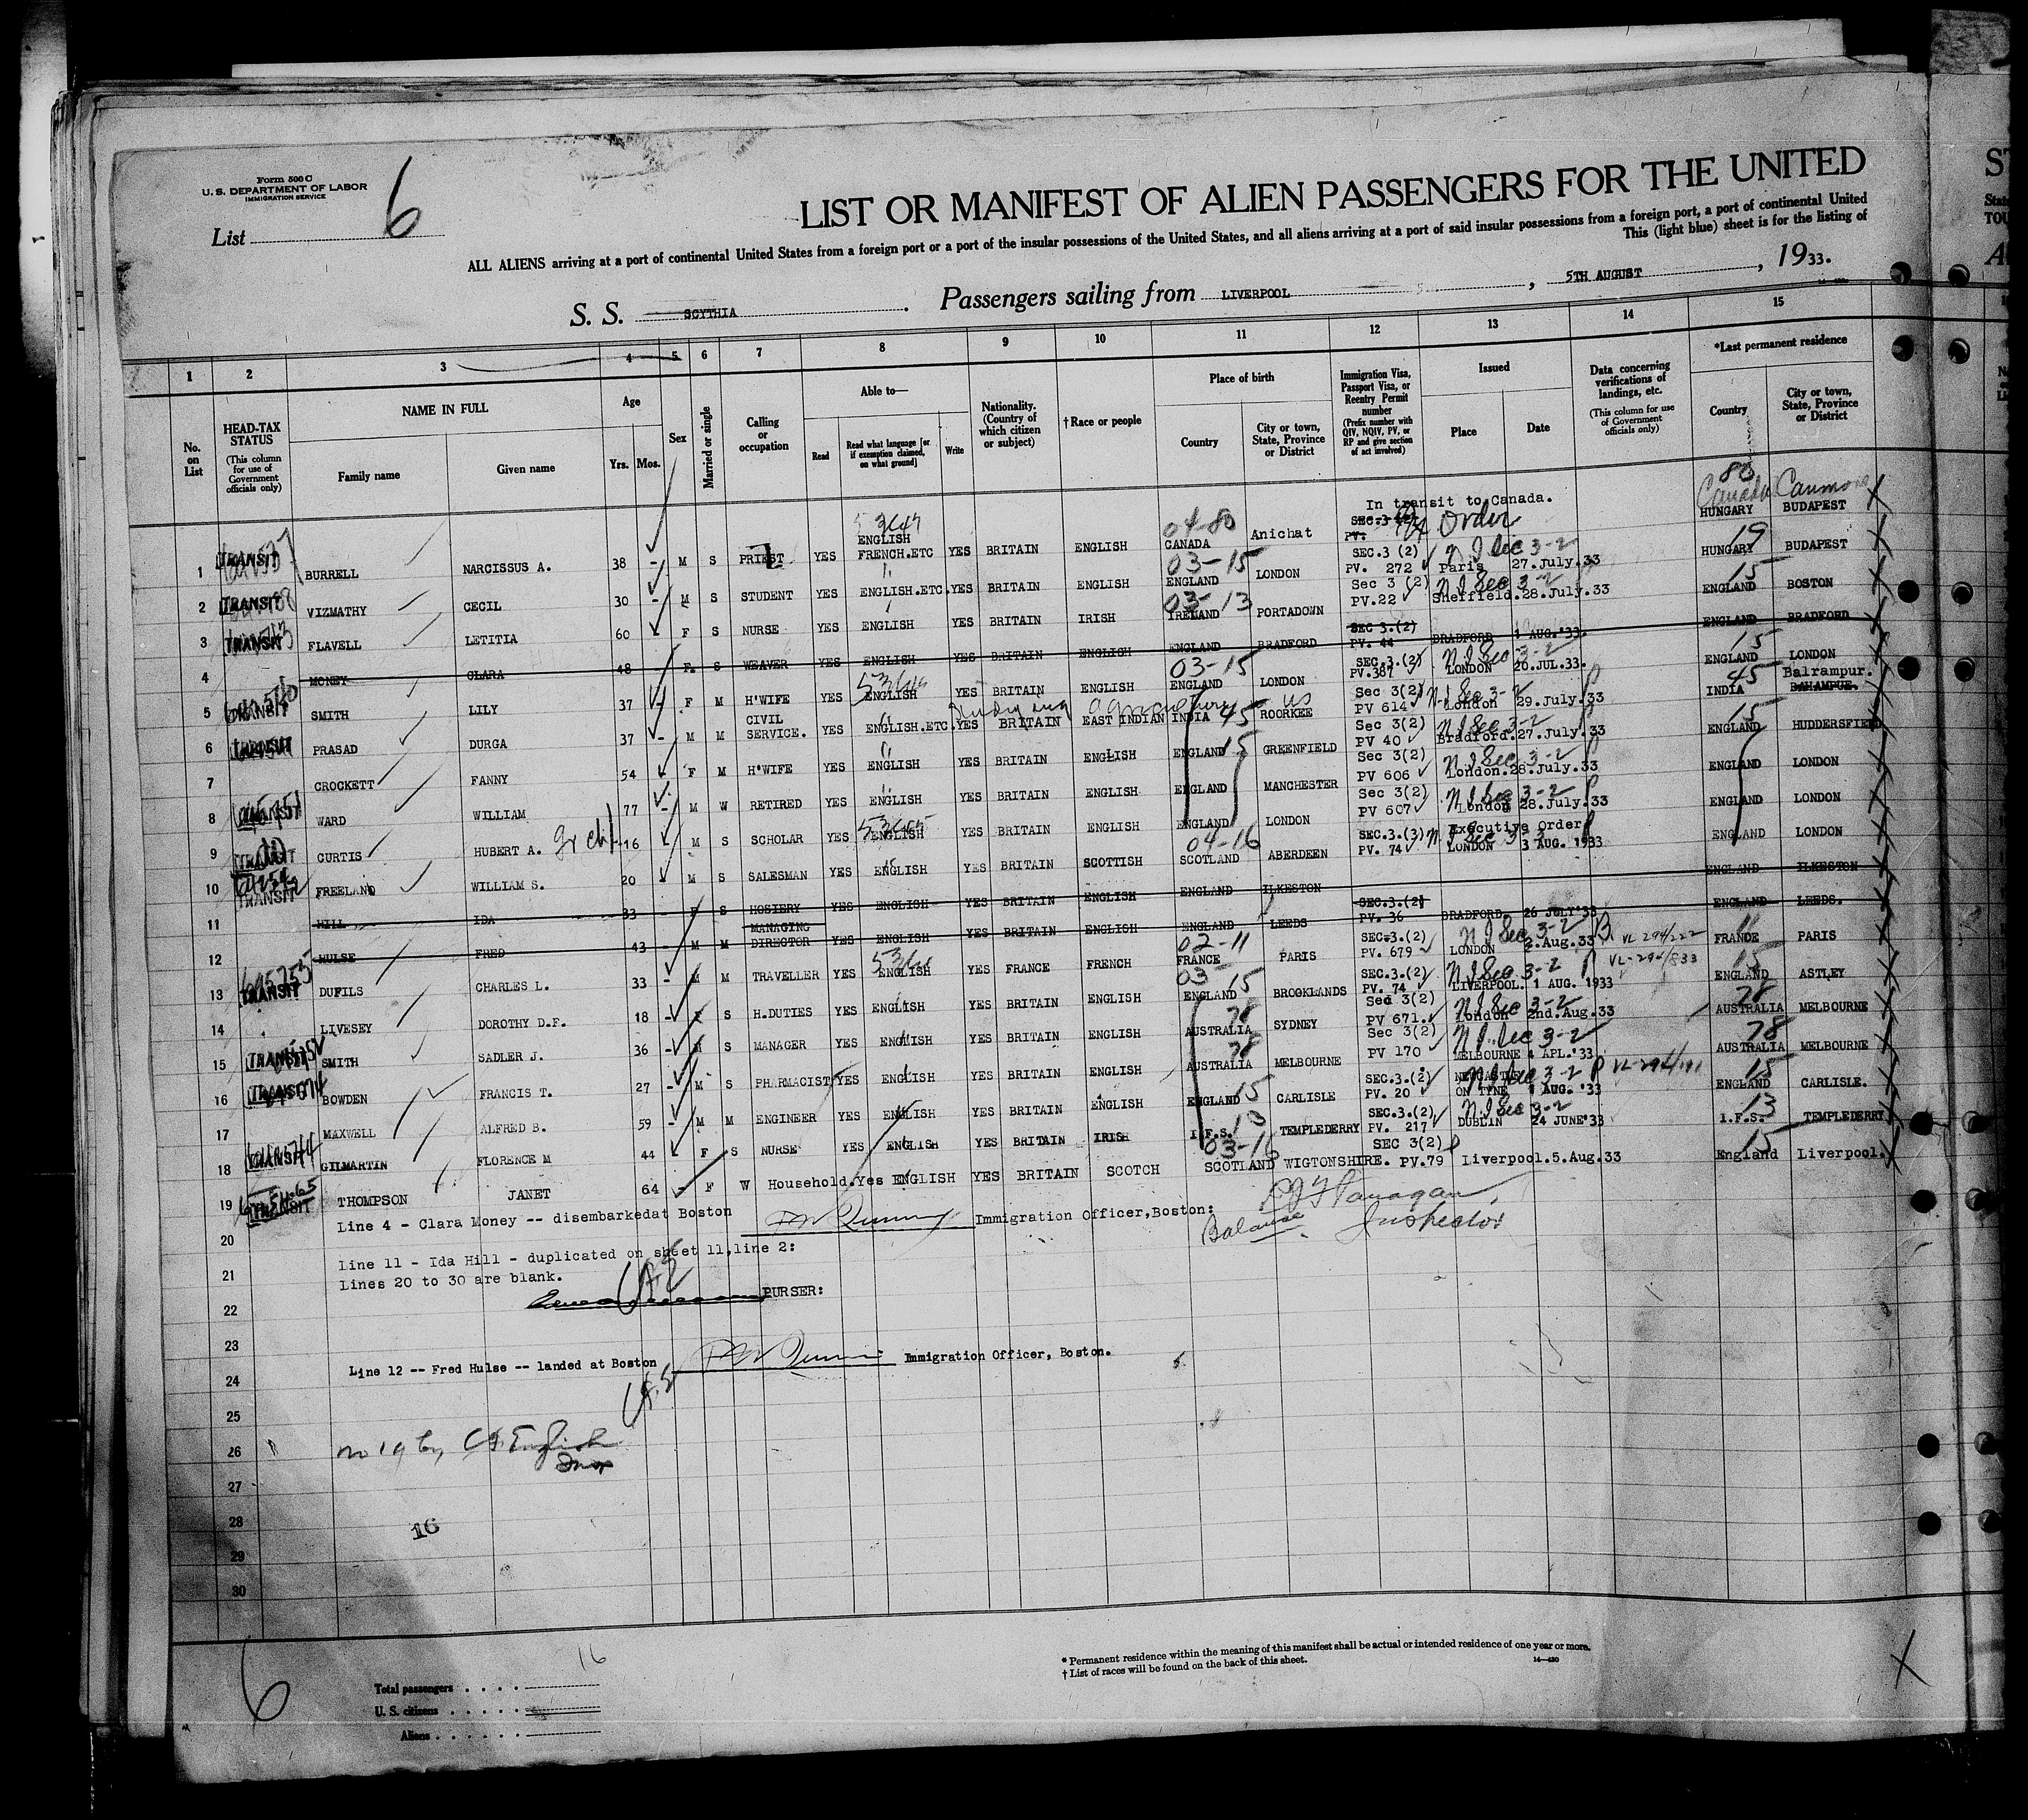 Form 500 C
U. S. DEPARTMENT OF LABOR
IMMIGRATION SERVICE
List 6
LIST OR MANIFEST OF ALIEN PASSENGERS FOR THE UNITED
ALL ALIENS arriving at a port of continental United States from a foreign port or a port of the insular possessions of the United States, and all aliens arriving at a port of said insular possessions from a foreign port, a port of continental United
This (light blue) sheet is for the listing of
S. S. SCYTHIA. Passengers sailing from LIVERPOOL, 5TH AUGUST, 1933.
1 2 3 4 5 6 7 8 9 10 11 12 13 14 15
No. on List
HEAD-TAX STATUS (This column for use of Government officials only)
NAME IN FULL
Family name
Given name
Age
Yrs.
Mos.
Sex
Married or single
Calling or occupation
Able to—
Read
Read what language [or if exemption claimed, on what ground]
Write
Nationality. (Country of which citizen or subject)
†Race or people
Place of birth
Country
City or town, State, Province or District
Immigration Visa, Passport Visa, or Reentry Permit number (Prefix number with QIV, NQIV, PV, or RP and give section of act involved)
Issued
Place
Date
Data concerning verifications of landings, etc. (This column for use of Government officials only)
*Last permanent residence
Country
City or town, State, Province or District
1 TRANSIT BURRELL NARCISSUS A. 38 - M S PRIEST YES ENGLISH FRENCH.ETC YES BRITAIN ENGLISH 04-80 CANADA Anichat In transit to Canada. SEC.3 (2) PV. Order 80 Canada HUNGARY BUDAPEST
2 TRANSIT VIZMATHY CECIL 30 - M S STUDENT YES ENGLISH.ETC. YES BRITAIN ENGLISH 03-15 ENGLAND LONDON SEC.3 (2) PV. 272 N I Sec 3-2 Paris 27.July.33 19 HUNGARY BUDAPEST
3 TRANSIT FLAVELL LETITIA 60 - F S NURSE YES ENGLISH YES BRITAIN IRISH 03-13 IRELAND PORTADOWN Sec 3 (2) PV.22 N I Sec 3-2 Sheffield.28.July.33 15 ENGLAND BOSTON
4 MONEY CLARA 48 - F. S WEAVER YES ENGLISH YES BRITAIN ENGLISH ENGLAND BRADFORD SEC 3.(2) PV. 44 BRADFORD 1 AUG.'33. ENGLAND BRADFORD
5 TRANSIT SMITH LILY 37 - F M H'WIFE YES ENGLISH YES BRITAIN ENGLISH 03-15 ENGLAND LONDON SEC.3.(2) PV.387 N I Sec 3-2 LONDON 20.JUL.33. 15 ENGLAND LONDON
6 TRANSIT PRASAD DURGA 37 - M M CIVIL SERVICE. YES ENGLISH.ETC. YES BRITAIN EAST INDIAN INDIA 45 ROORKEE Sec 3(2) PV 614 N I Sec 3-2 London 29.July.33 45 INDIA Balrampur. BAHAMPUR.
7 CROCKETT FANNY 54 - F M H'WIFE YES ENGLISH YES BRITAIN ENGLISH ENGLAND 15 GREENFIELD Sec 3(2) PV 40 N I Sec 3-2 Bradford.27.July.33 15 ENGLAND HUDDERSFIELD
8 TRANSIT WARD WILLIAM 77 - M W RETIRED YES ENGLISH YES BRITAIN ENGLISH ENGLAND MANCHESTER Sec 3(2) PV 606 N I Sec 3-2 London.28.July.33 ENGLAND LONDON
9 TRANSIT CURTIS HUBERT A. 16 M S SCHOLAR YES ENGLISH YES BRITAIN ENGLISH ENGLAND LONDON Sec 3(2) PV 607 N I Sec 3-2 London 28.July.33 ENGLAND LONDON
10 TRANSIT FREELAND WILLIAM S. 20 M S SALESMAN YES ENGLISH YES BRITAIN SCOTTISH 04-16 SCOTLAND ABERDEEN SEC.3.(3) PV. 74 N I Sec 3-3 Executive Order LONDON 3 AUG. 1933 ENGLAND LONDON
11 HILL IDA 33 - F S HOSIERY YES ENGLISH YES BRITAIN ENGLISH ENGLAND ILKESTON SEC.3.(2) PV. 36 BRADFORD 26 JULY'33 ENGLAND ILKESTON
12 HULSE FRED 43 - M M MANAGING DIRECTOR YES ENGLISH YES BRITAIN ENGLISH ENGLAND LEEDS ENGLAND LEEDS.
13 TRANSIT DUFILS CHARLES L. 33 - M M TRAVELLER YES ENGLISH YES FRANCE FRENCH 02-11 FRANCE PARIS SEC.3.(2) PV. 679 N I Sec 3-2 LONDON 2.Aug.33 VL 294/222 11 FRANCE PARIS
14 LIVESEY DOROTHY D.F. 18 - F S H.DUTIES YES ENGLISH YES BRITAIN ENGLISH 03-15 ENGLAND BROOKLANDS SEC.3.(2) PV. 74 N I Sec 3-2 LIVERPOOL. 1 AUG. 1933 VL-294/833 15 ENGLAND ASTLEY
15 TRANSIT SMITH SADLER J. 36 - M S MANAGER YES ENGLISH YES BRITAIN ENGLISH 78 AUSTRALIA SYDNEY Sec 3(2) PV 671. N I Sec 3-2 London 2nd.Aug.33 78 AUSTRALIA MELBOURNE
16 TRANSIT BOWDEN FRANCIS T. 27 - M S PHARMACIST YES ENGLISH YES BRITAIN ENGLISH 78 AUSTRALIA MELBOURNE Sec 3(2) PV 170 N I Sec 3-2 MELBOURNE 4 APL.'33 78 AUSTRALIA MELBOURNE
17 MAXWELL ALFRED B. 59 - M M ENGINEER YES ENGLISH YES BRITAIN ENGLISH ENGLAND 15 CARLISLE SEC.3.(2) PV. 20 N I Sec 3-2 NEWCASTLE ON TYNE 1 AUG. '33 15 ENGLAND CARLISLE.
18 TRANSIT GILMARTIN FLORENCE M 44 F S NURSE YES ENGLISH YES BRITAIN IRISH I.F.S. 13 TEMPLEDERRY SEC.3.(2) PV. 217 N I Sec 3-2 DUBLIN 24 JUNE'33 13 I.F.S. TEMPLEDERRY
19 TRANSIT THOMPSON JANET 64 - F W Household. Yes ENGLISH YES BRITAIN SCOTCH 03-16 SCOTLAND WIGTONSHIRE. SEC 3(2) PV.79 Liverpool.5.Aug.33 15 England Liverpool.
20 Line 4 - Clara Money -- disembarkedat Boston Immigration Officer,Boston:
Balance Inspector
21 Line 11 - Ida Hill - duplicated on sheet 11,line 2:
Lines 20 to 30 are blank.
22 PURSER:
23
24 Line 12 -- Fred Hulse -- landed at Boston Immigration Officer, Boston.
25
26 no 19 by English
27
28 16
29
30
6
16
Total passengers
U. S. citizens
Aliens
* Permanent residence within the meaning of this manifest shall be actual or intended residence of one year or more.
† List of races will be found on the back of this sheet.
14—430